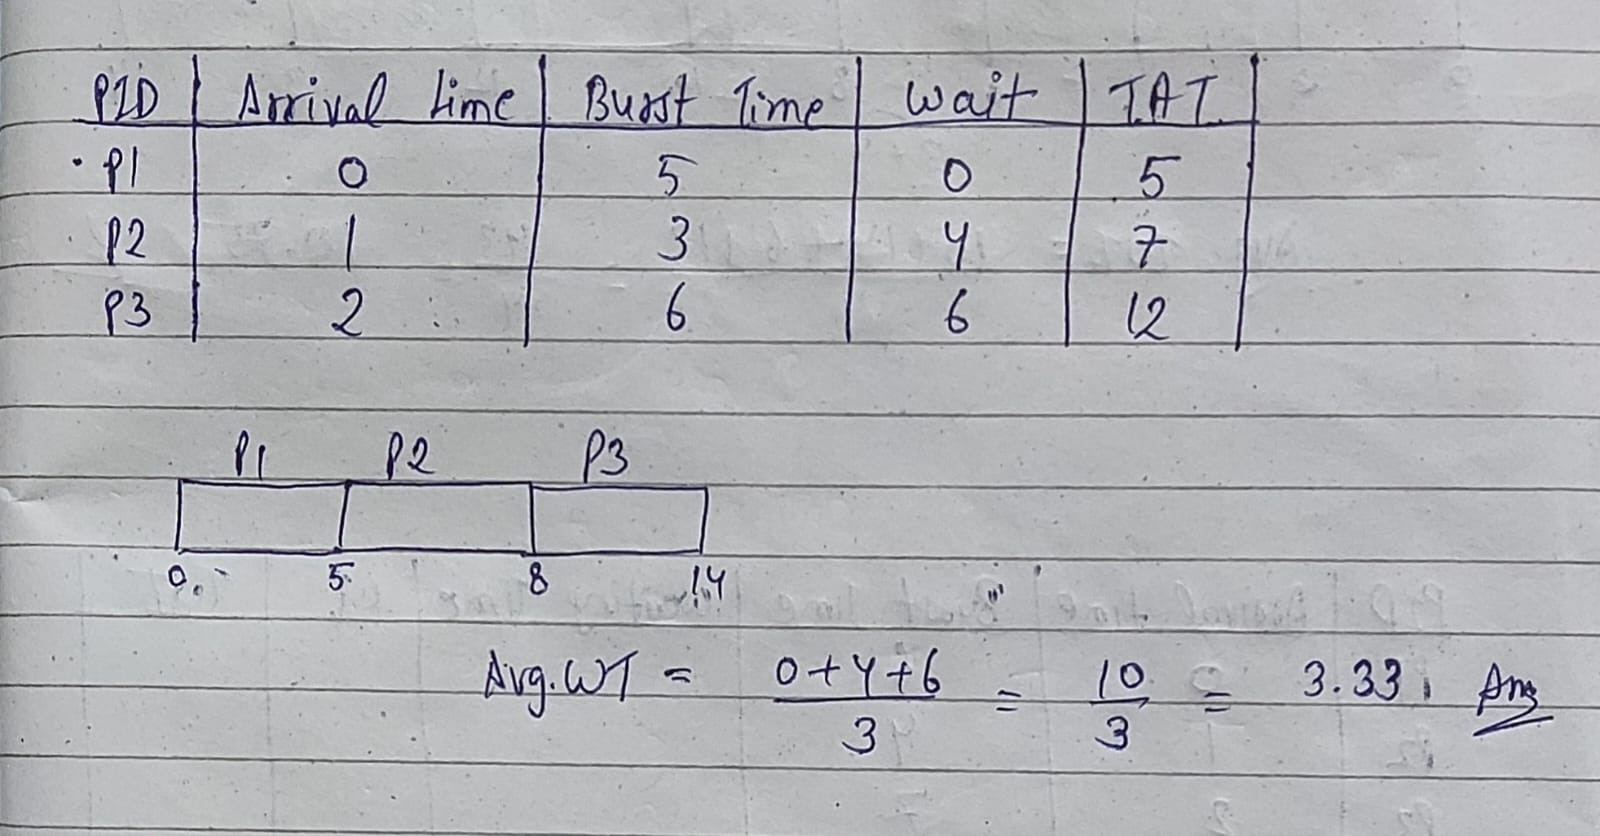 PID Arrival time Burst Time Wait T.A.T.
P1 0 5 0 5
P2 1 3 4 7
P3 2 6 6 12
P1 P2 P3
0 5 8 14
Avg.WT = 0+4+6/3 = 10/3 = 3.33 Ans